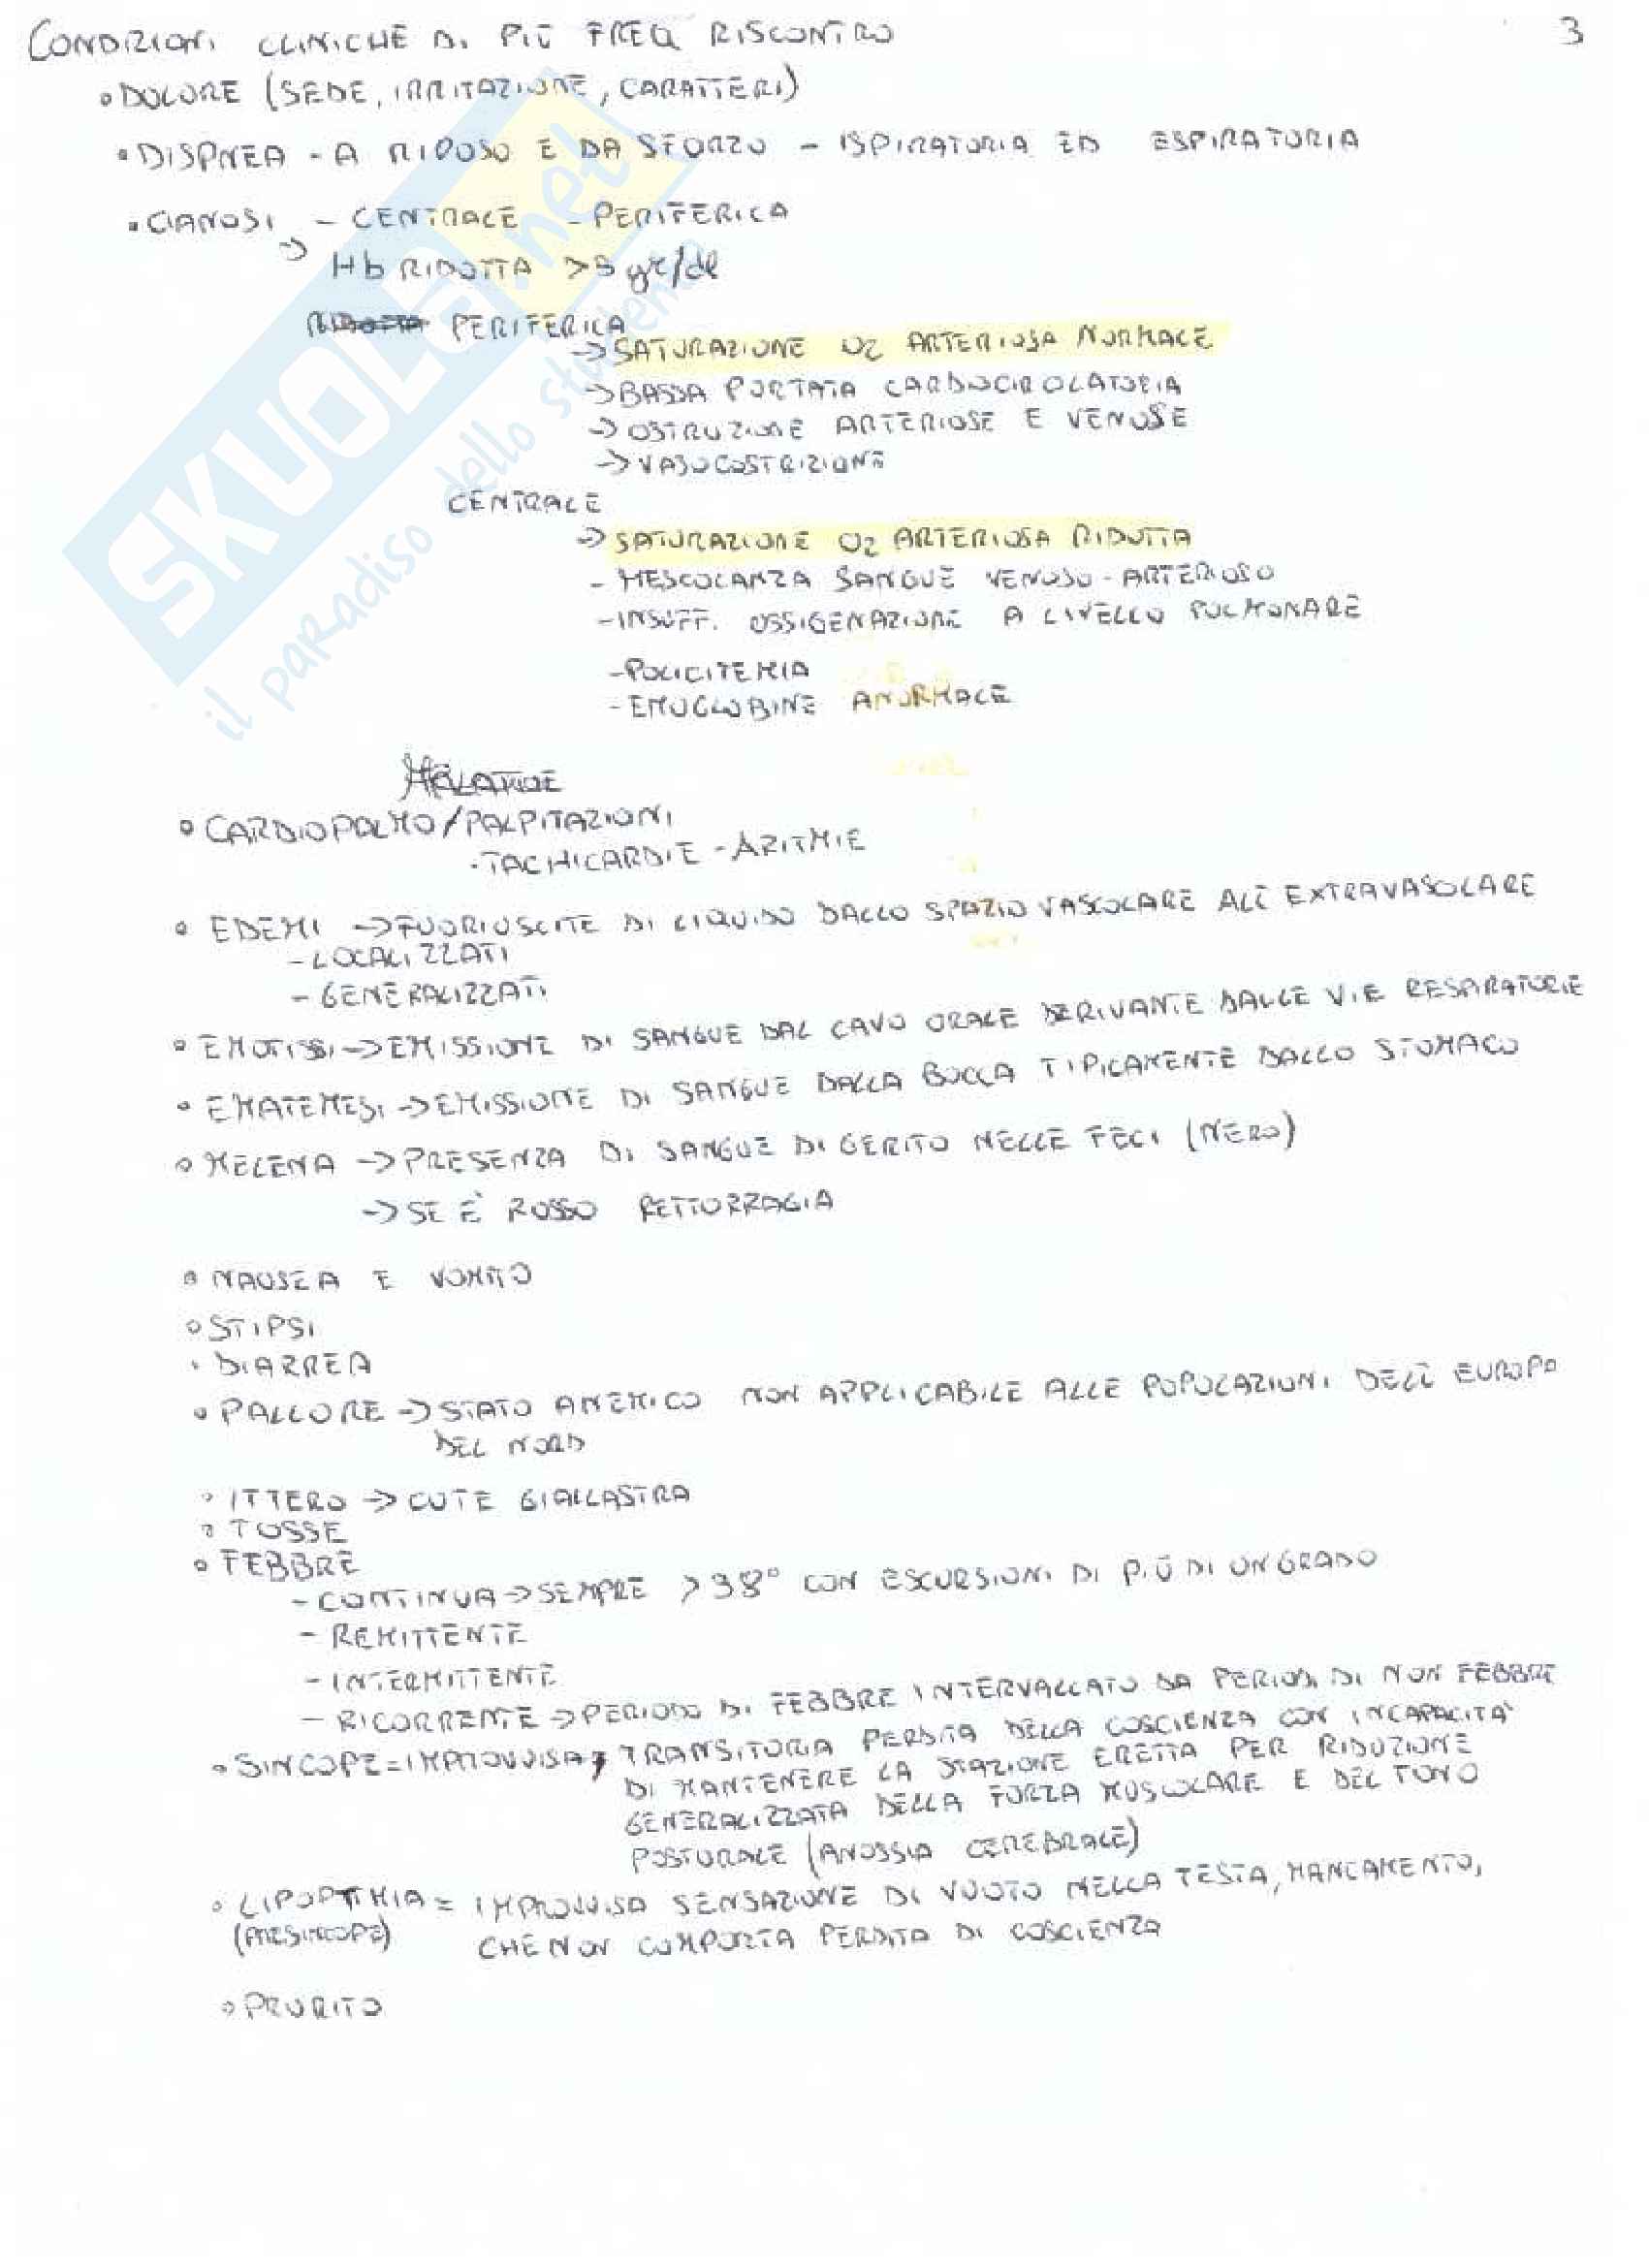 CONDIZIONI CLINICHE DI PIÙ FREQ RISCONTRO 3
• DOLORE (SEDE, IRRITAZIONE, CARATTERI)
• DISPNEA - A RIPOSO E DA SFORZO - ISPIRATORIA ED ESPIRATORIA
• CIANOSI - CENTRALE - PERIFERICA
→ Hb RIDOTTA >5 gr/dl
PERIFERICA
→ SATURAZIONE O2 ARTERIOSA NORMALE
→ BASSA PORTATA CARDIOCIRCOLATORIA
→ OSTRUZIONE ARTERIOSE E VENOSE
→ VASOCOSTRIZIONE
CENTRALE
→ SATURAZIONE O2 ARTERIOSA RIDOTTA
- MESCOLANZA SANGUE VENOSO - ARTERIOSO
- INSUFF. OSSIGENAZIONE A LIVELLO POLMONARE
- POLICITEMIA
- EMOGLOBINE ANORMALE
• CARDIOPALMO/PALPITAZIONI
- TACHICARDIE - ARITMIE
• EDEMI → FUORIUSCITE DI LIQUIDO DALLO SPAZIO VASCOLARE ALL'EXTRAVASCOLARE
- LOCALIZZATI
- GENERALIZZATI
• EMOTISSI → EMISSIONE DI SANGUE DAL CAVO ORALE DERIVANTE DALLE VIE RESPIRATORIE
• EMATEMESI → EMISSIONE DI SANGUE DALLA BOCCA TIPICAMENTE DALLO STOMACO
• MELENA → PRESENZA DI SANGUE DIGERITO NELLE FECI (NERO)
→ SE È ROSSO RETTORRAGIA
• NAUSEA E VOMITO
• STIPSI
• DIARREA
• PALLORE → STATO ANEMICO NON APPLICABILE ALLE POPOLAZIONI DELL'EUROPA
DEL NORD
• ITTERO → CUTE GIALLASTRA
• TOSSE
• FEBBRE
- CONTINUA → SEMPRE >38° CON ESCURSIONI DI PIÙ DI UN GRADO
- REMITTENTE
- INTERMITTENTE
- RICORRENTE → PERIODO DI FEBBRE INTERVALLATO DA PERIODI DI NON FEBBRE
• SINCOPE = IMPROVVISA, TRANSITORIA PERDITA DELLA COSCIENZA CON INCAPACITÀ
DI MANTENERE LA STAZIONE ERETTA PER RIDUZIONE
GENERALIZZATA DELLA FORZA MUSCOLARE E DEL TONO
POSTURALE (ANOSSIA CEREBRALE)
• LIPOTIMIA = IMPROVVISA SENSAZIONE DI VUOTO NELLA TESTA, MANCAMENTO,
(PRESINCOPE) CHE NON COMPORTA PERDITA DI COSCIENZA
• PRURITO
SKUOLA.net
il paradiso dello studente